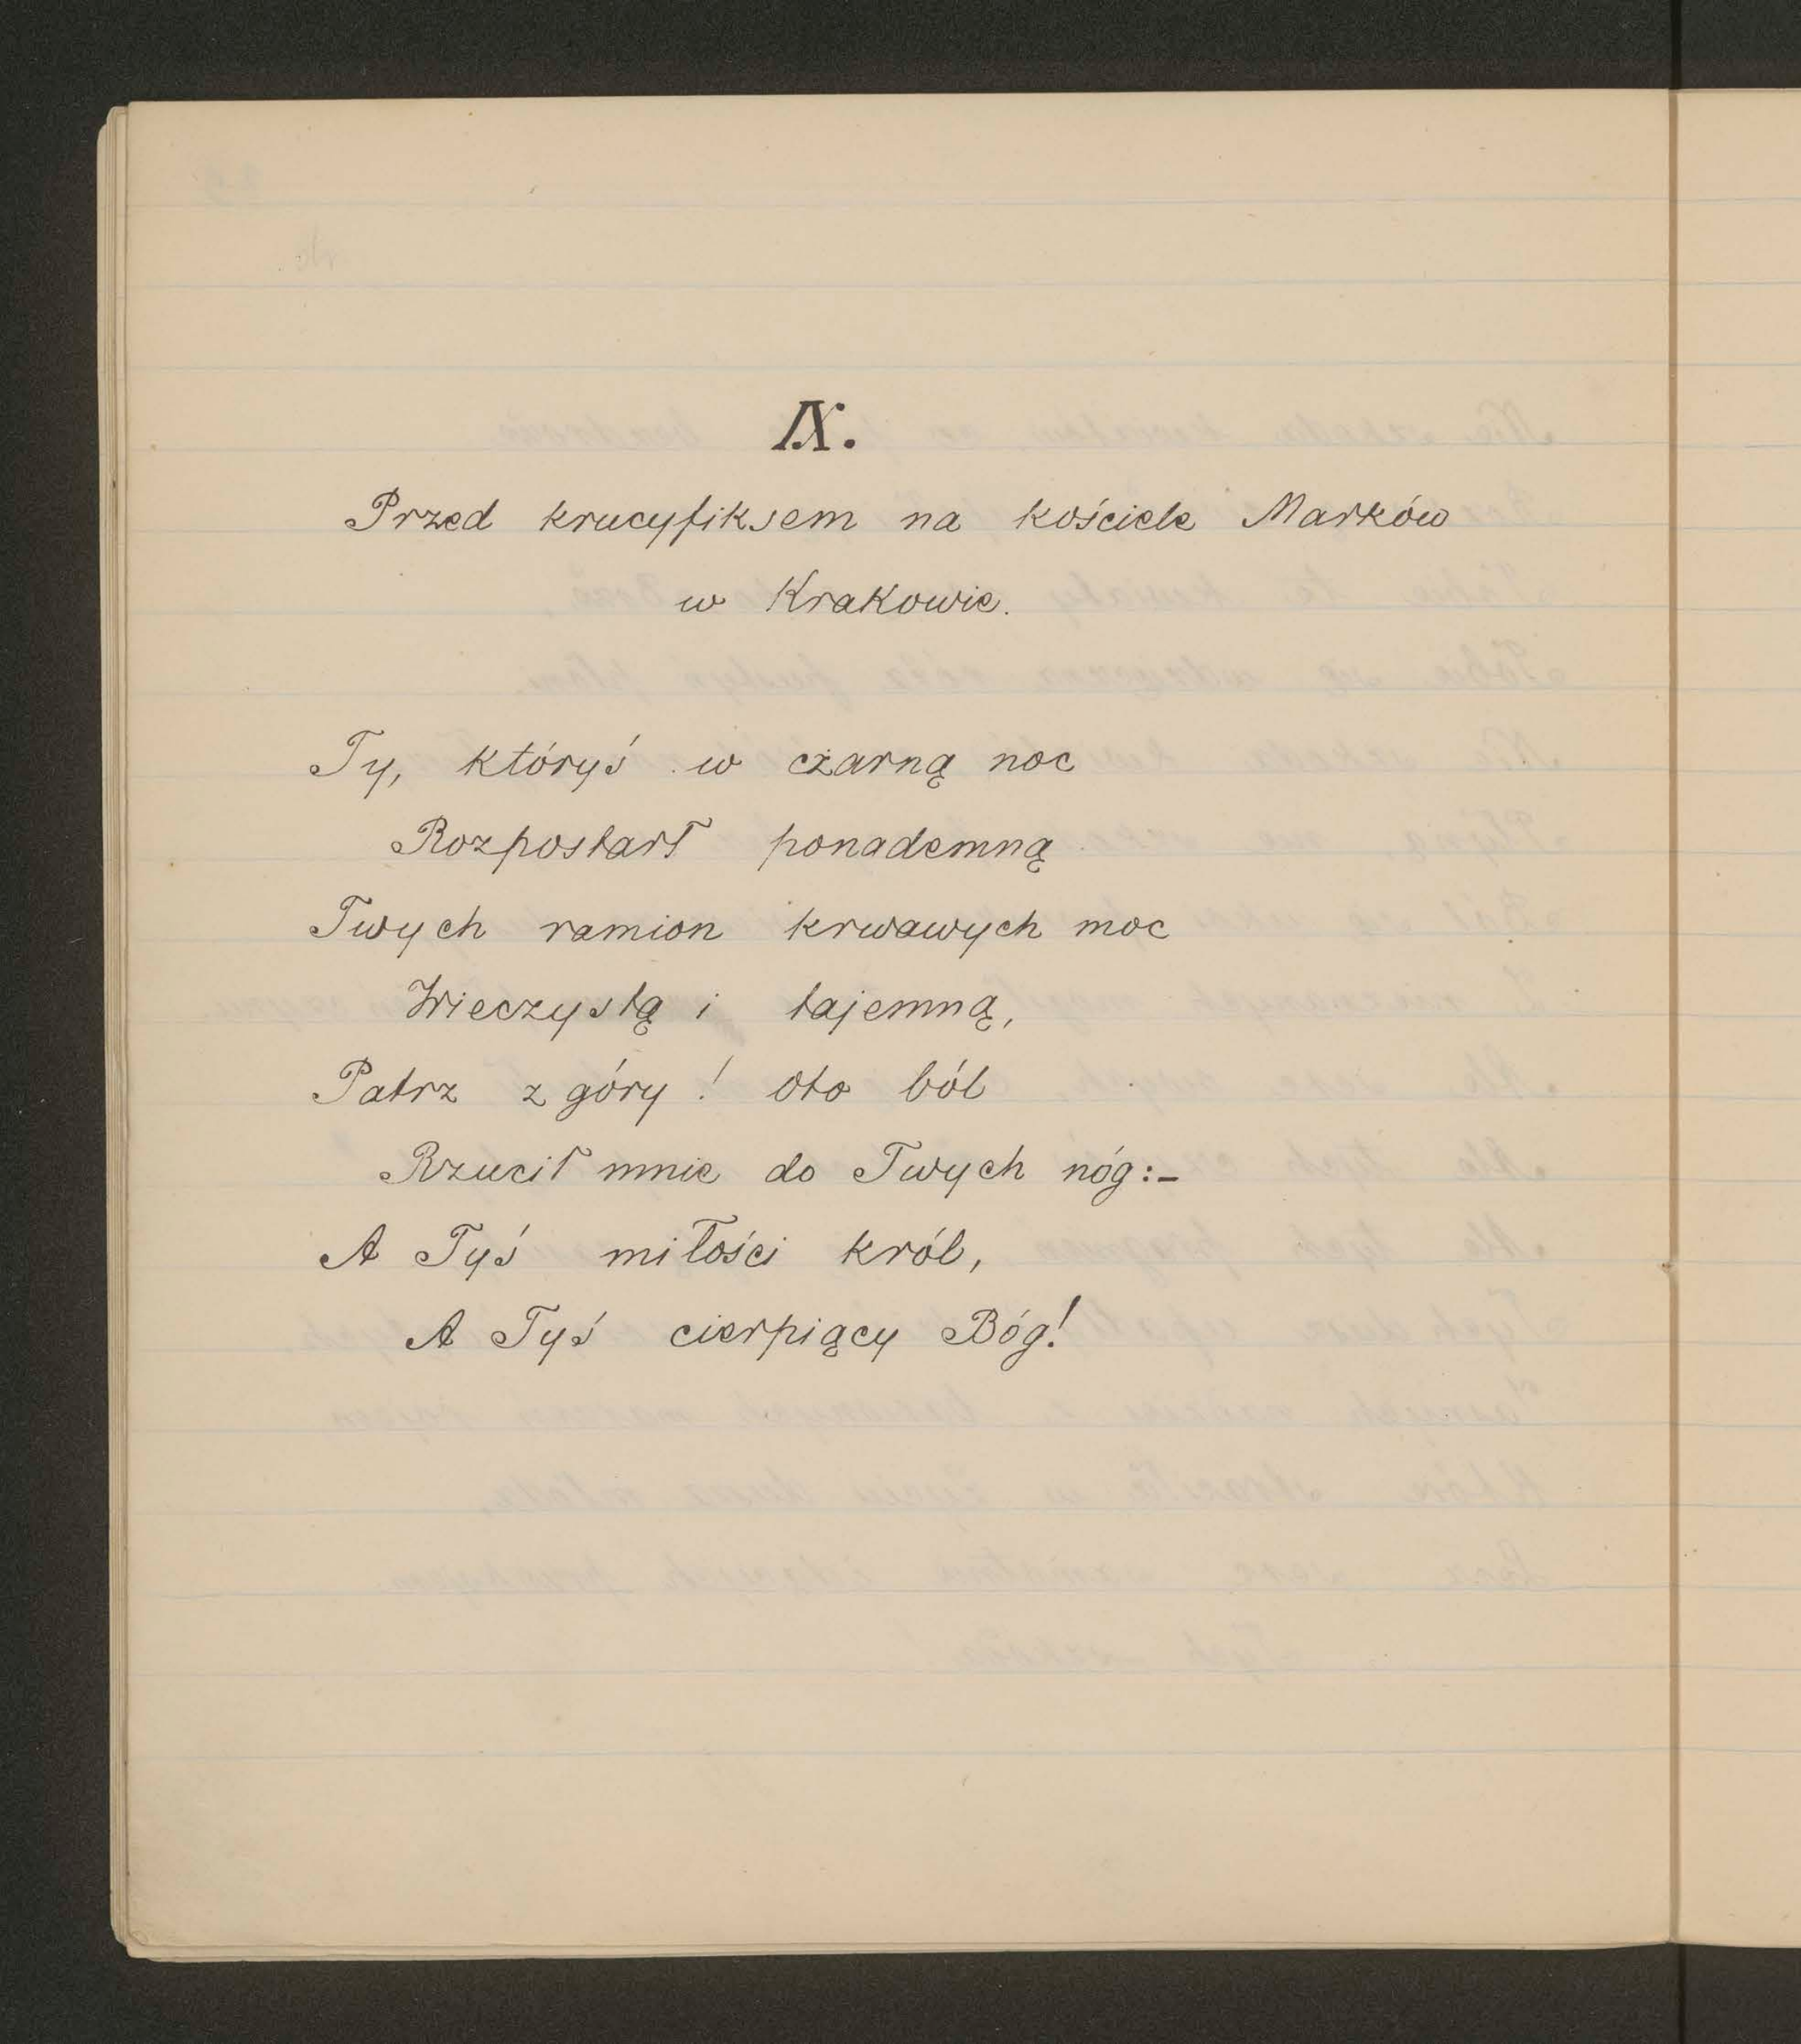 IX.
Przed krucyfiksem na kościele Marków
w Krakowie.
Ty, któryś w czarną noc
Rozpostarł ponademną
Twych ramion krwawych moc
Wieczystą i tajemną,
Patrz z góry! oto ból
Rzucił mnie do Twych nóg:-
A Tyś miłości król,
A Tyś cierpiący Bóg!